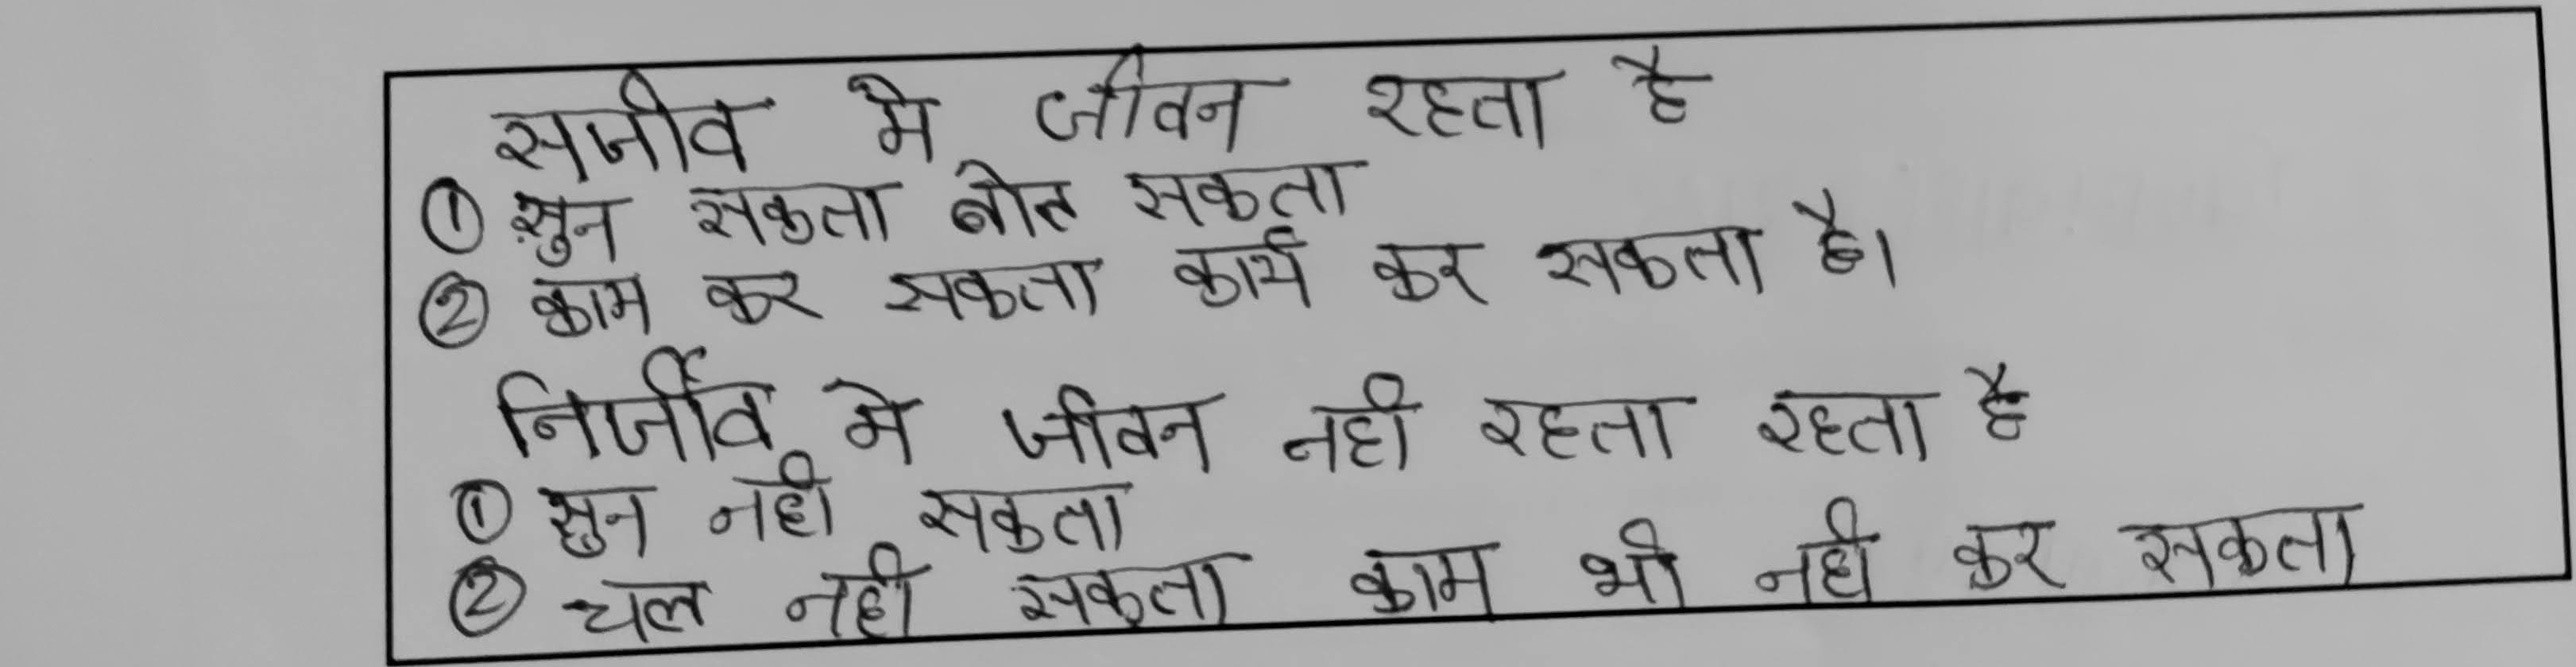 सजीव मे जीवन रहता है
① सुन सकता बोल सकता
② काम कर सकता कार्य कर सकता है।
निर्जीव मे जीवन नही रहता रहता है
① सुन नही सकता
② चल नही सकता काम भी नही कर सकता